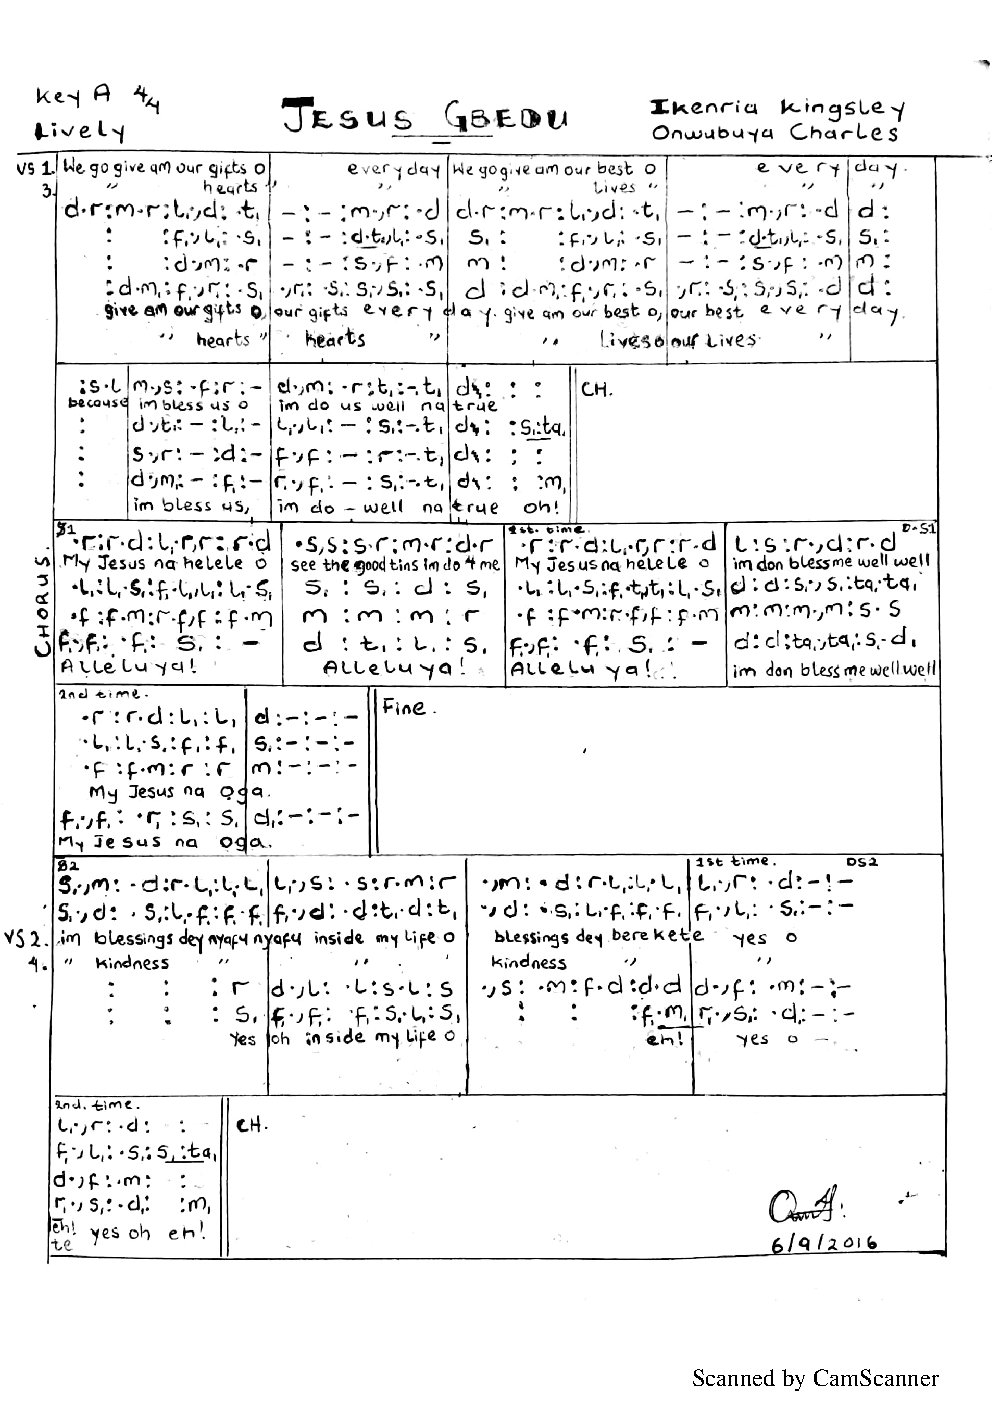 Key A 4/4
Lively
JESUS GBEDU
Ikenria Kingsley
Onwubuya Charles
VS 1. We go give am our gifts o every day We go give am our best o every day.
3. " hearts " " " lives " " "
d.r:m.r:l,.,d:.t, - : - :m.,r:.d d.r:m.r:l,.,d:.t, - : - :m.,r:.d d:
: :f,.,l,:.s, - : - :d.t,.,l,:.s, s,: :f,.,l,:.s, - : - :d.t,.,l,:.s, s,:
: :d.,m:.r - : - :s.,f:.m m: :d.,m:.r - : - :s.,f:.m m:
:d.m,:f,.,r,:.s, .,r,:.s,:s,.,s,:.s, d:d.m,:f,.,r,:.s, .,r,:.s,:s,.,s,:.d d:
give am our gifts o, our gifts every day. give am our best o, our best every day.
" hearts " hearts " " lives o our lives "
:s.l m.,s:.f:r:- d.,m:.r:t,:-.t, d.,: : : CH.
because im bless us o im do us well na true
: d.,t,:-:l,:- l,.,l,:-:s,:-.t, d.,: :s,:ta,
: s.,r:-:d:- f.,f:-:r:-.t, d.,: : :
: d.,m,:-:f,:- r,.,f,:-:s,:-.t, d.,: : :m,
im bless us, im do - well na true oh!
CHORUS.
S1 1st. time. D-S1
.r:r.d:l,.r,r:r.d .s,s:s.r:m.r:d.r .r:r.d:l,.r,r:r.d l:s:r.,d:r.d
My Jesus na helele o see the good tins im do 4 me My Jesus na helele o im don bless me well well
.l,:l,.s,:f,.l,l,:l,.s, s,:s,:d:s, .l,:l,.s,:f,.t,t,:l,.s, d:d:s,.,s,:ta,.ta,
.f:f.m:r.f,f:f.m m:m:m:r .f:f.m:r.f,f:f.m m:m:m.,m:s.s
f,.,f,:.f,:s,:- d:t,:l,:s, f,.,f,:.f,:s,:- d:d:ta,.,ta,:s,.d,
Alleluya! Alleluya! Alleluya! im don bless me well well
2nd time.
.r:r.d:l,:l, d:-:-:- Fine.
.l,:l,.s,:f,:f, s,:-:-:-
.f:f.m:r:r m:-:-:-
My Jesus na oga.
f,.,f,:.r,:s,:s, d,:-:-:-
My Jesus na oga.
S2 1st time. DS2
s,.,m:.d:r.l,:l,.l, l,.,s:.s:r.m:r .,m:.d:r.l,:l,.l, l,.,r:.d:-:-
s,.,d:.s,:l,.f,:f,.f, f,.,d:.d:t,.d:t, .,d:.s,:l,.f,:f,.f, f,.,l,:.s,:-:-
VS 2. im blessings dey nyafu nyafu inside my life o blessings dey berekete yes o
4. " kindness " " " kindness " "
: : :r d.,l:.l:s.l:s .,s:.m:f.d:d.d d.,f:.m:-:-
: : :s, f,.,f,:.f,:s,.l,:s, : : :f,.m, r,.,s,:.d,:-:-
yes oh inside my life o eh! yes o -
2nd. time.
l,.,r:.d: : CH.
f,.,l,:.s,:s,:ta,
d.,f:.m: :
r,.,s,:.d,: :m,
eh! yes oh eh!
te
6/9/2016
Scanned by CamScanner